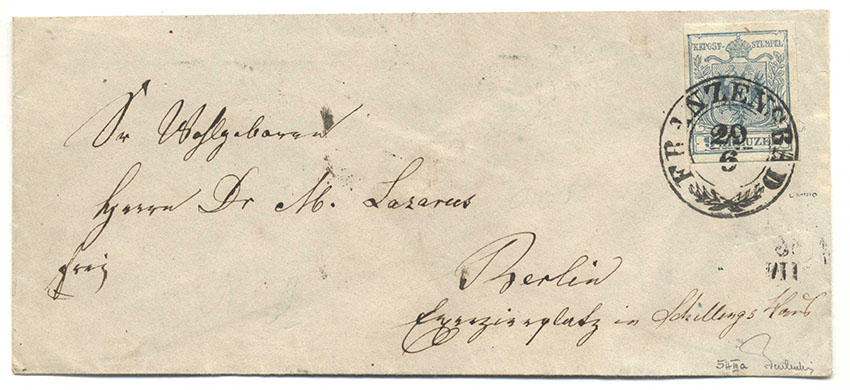 KKPOST-STEMPEL
KREUZER
FRANZENSBAD
29
6
Sr Wohlgeboren
Herrn Dr M. Lazarus
frei
Berlin
Exerzierplatz in Schillings Haus